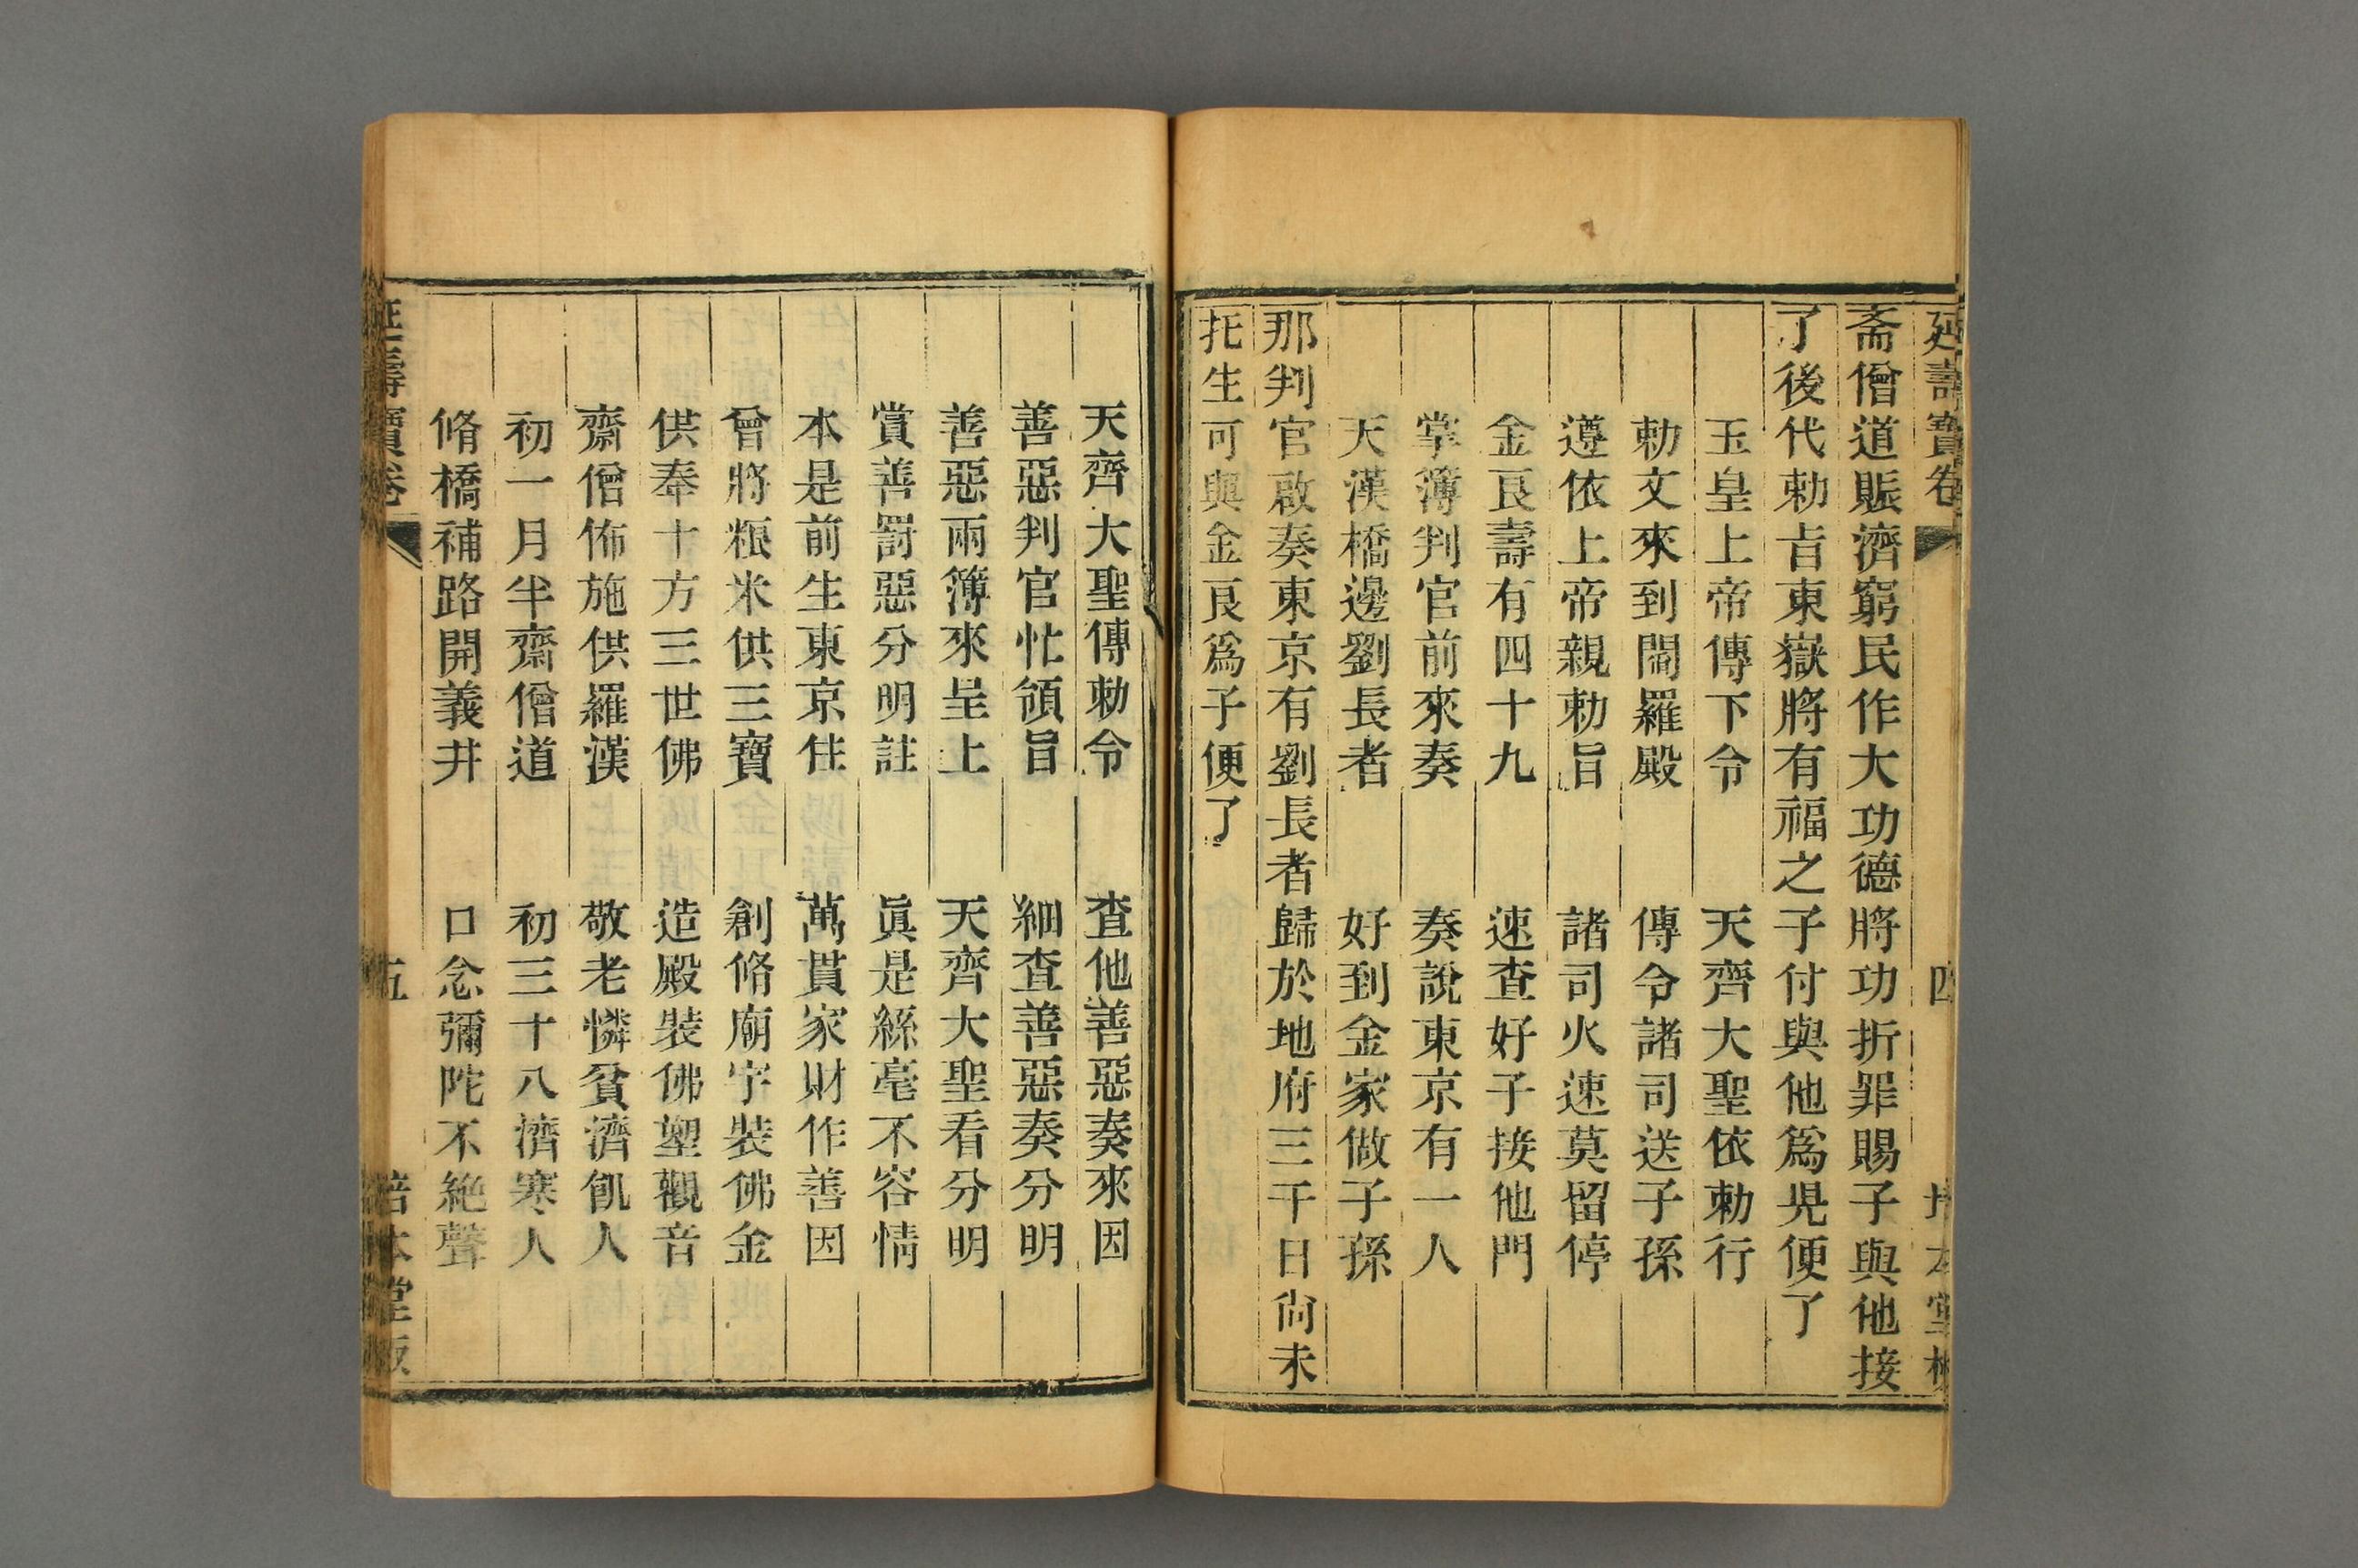 延壽寶卷 四 培本堂板
斋僧道賑濟窮民作大功德將功折罪賜子與他接
了後代勅㫖東嶽將有福之子付與他爲児便了
玉皇上帝傳下令 天齊大聖依勅行
勅文來到閻羅殿 傳令諸司送子孫
遵依上帝親勅旨 諸司火速莫留停
金艮壽有四十九 速查好子接他門
掌簿判官前來奏 奏說東京有一人
天漢橋邊劉長者 好到金家做子孫
那判官啟奏東京有劉長者歸於地府三千日尙未
托生可與金艮爲子便了
天齊大聖傳勅令 查他善惡奏來因
善惡判官忙領旨 細查善惡奏分明
善惡兩簿來呈上 天齊大聖看分明
賞善罰惡分明註 眞是絲毫不容情
本是前生東京住 萬貫家財作善因
曾將粮米供三寶 創脩廟宇裝佛金
供奉十方三世佛 造殿裝佛塑觀音
齋僧佈施供羅漢 敬老憐貧濟飢人
初一月半齋僧道 初三十八濟寒人
脩橋補路開義井 口念彌陀不絶聲
延壽寶卷 五 培本堂板